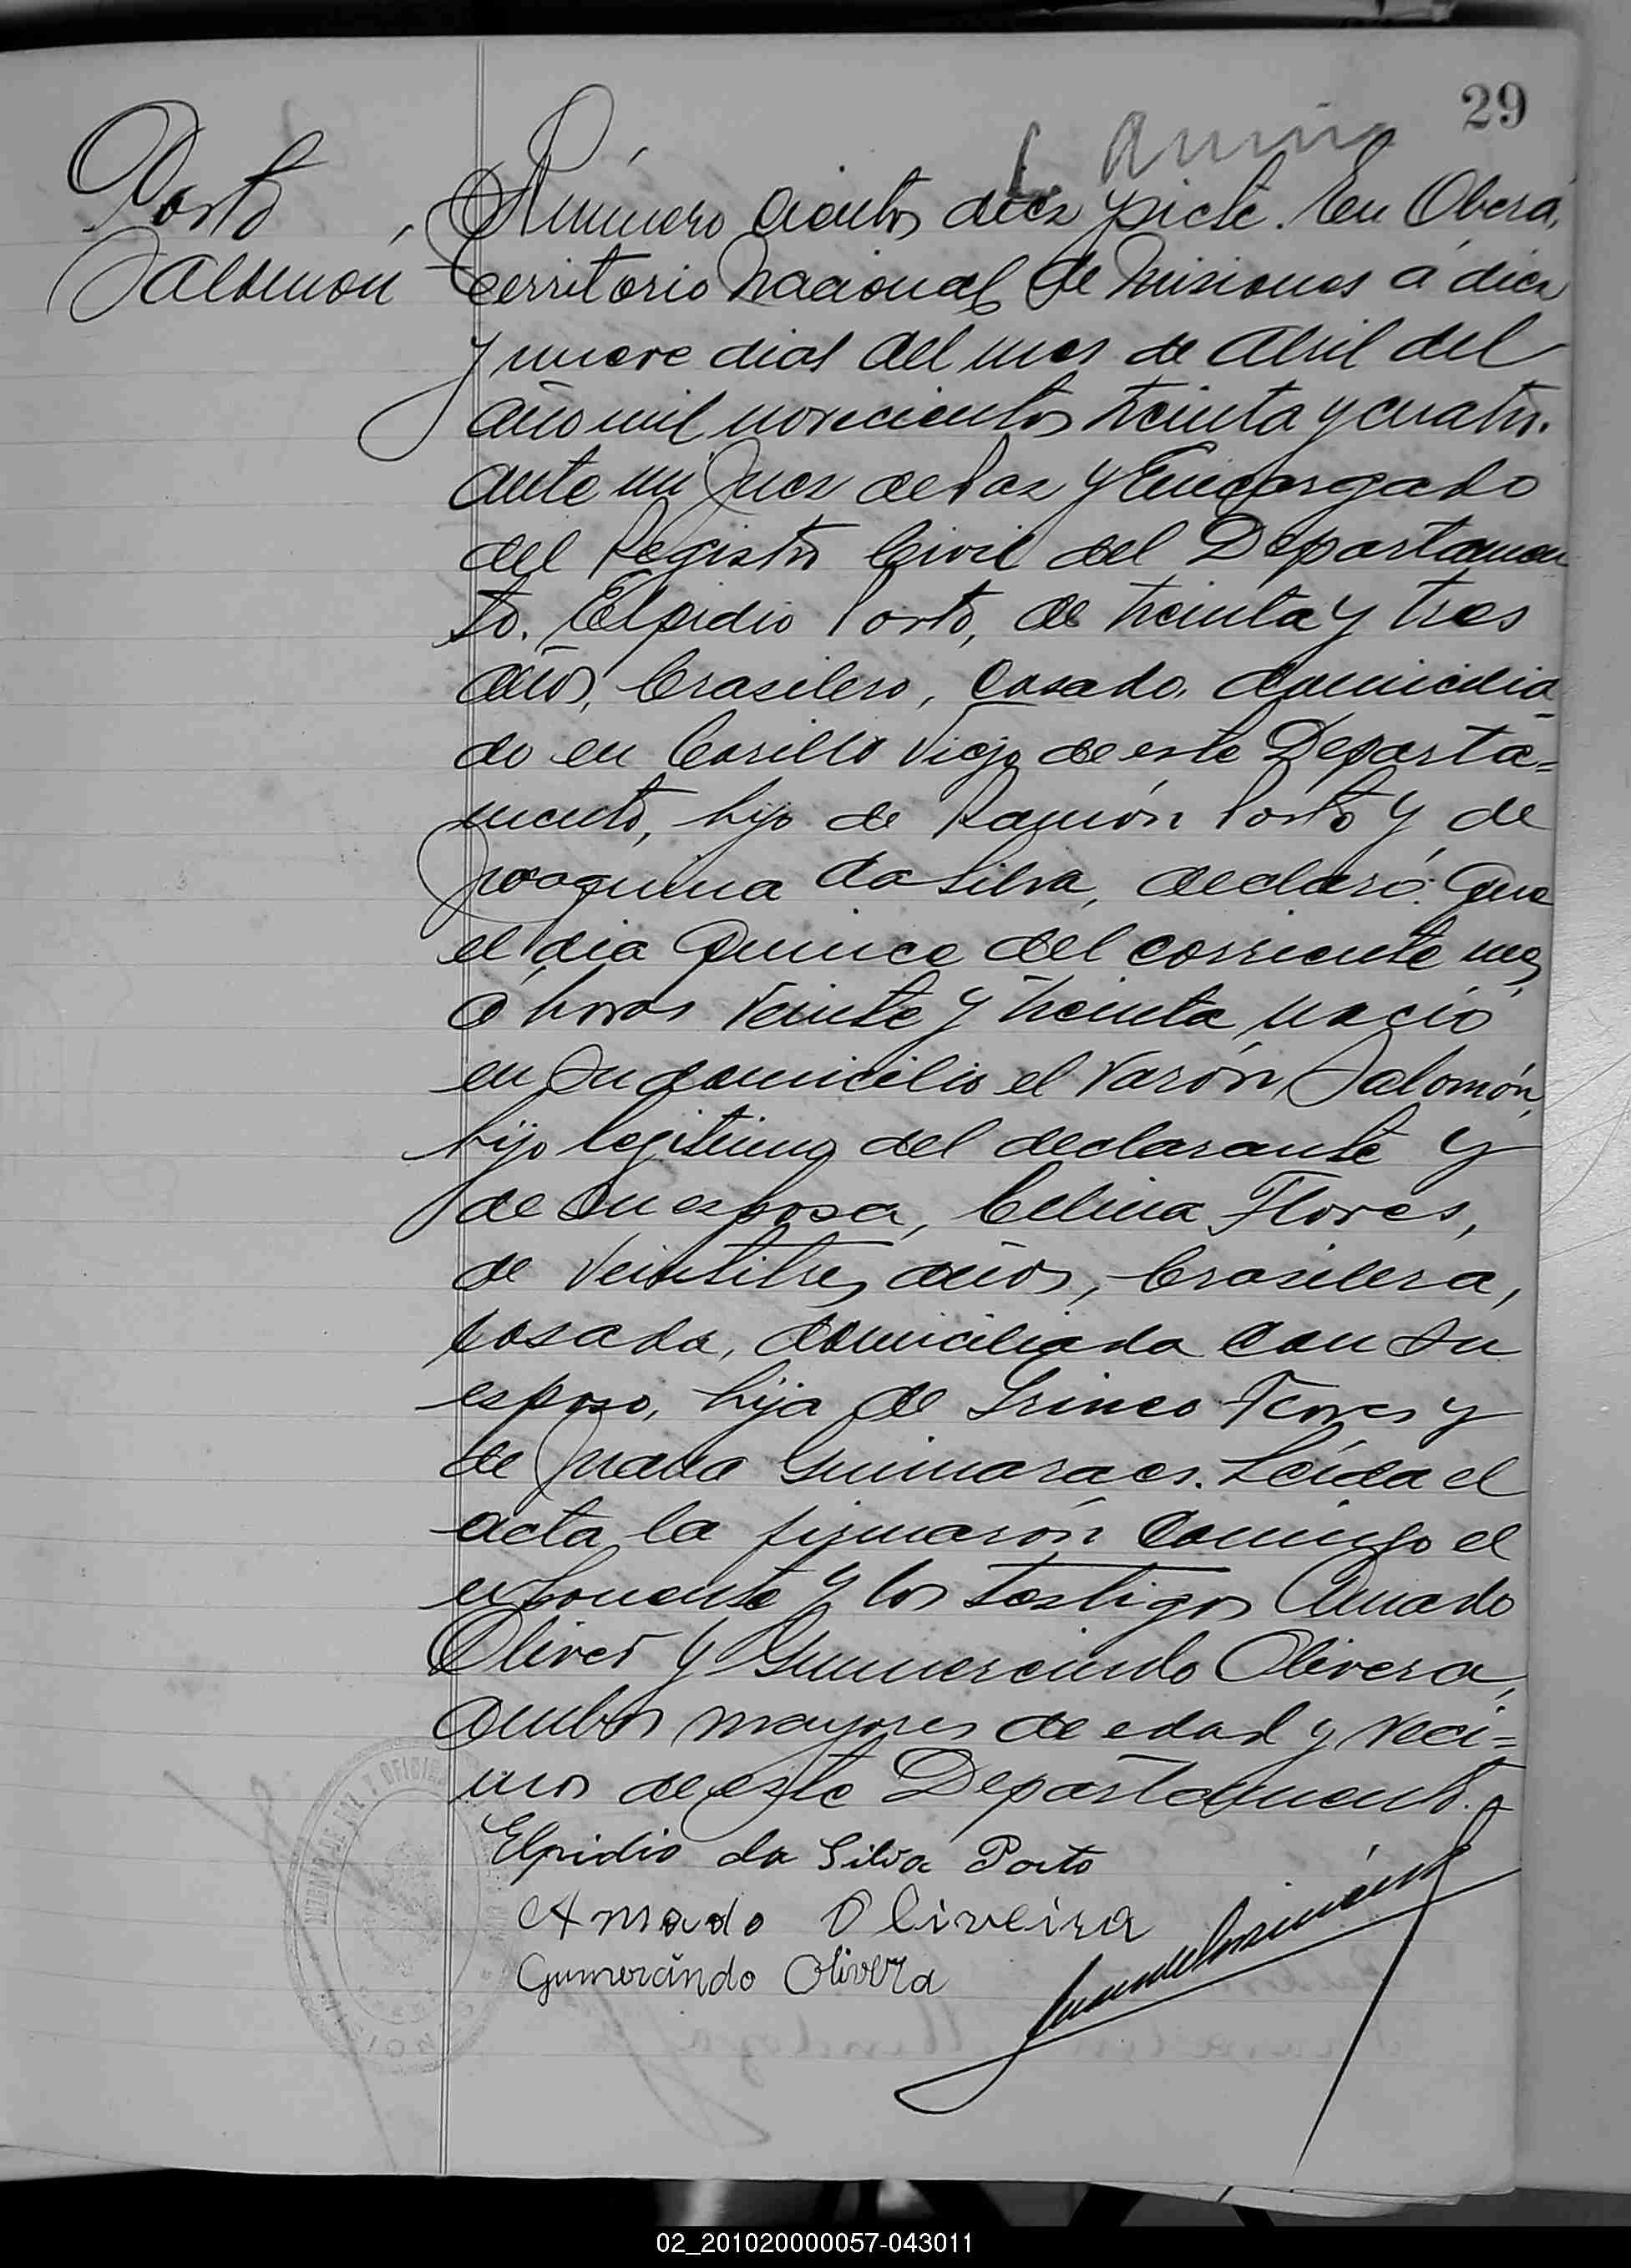 29
Porto
Salomón
Número ciento diez y siete. En Oberá,
territorio Nacional de Misiones á diez
y nueve dias del mes de Abril del
año mil novecientos treinta y cuatro.
ante mi Juez de Paz y Encargado
del Registro Civil del Departamen
to. Elpidio Porto, de treinta y tres
años, brasilero, casado, domicilia-
do en Cerillo Viejo de este Departa=
mento, hijo de Ramón Porto y de
Joaquina da Silva, declaró: Que
el dia Quince del corriente mes
á horas Veinte y treinta, nació
en su domicilio el varón Salomón,
hijo legitimo del declarante y
de su esposa, Celina Flores,
de veintitres años, brasilera,
casada, domiciliada con su
esposo, hija de Irineo Flores y
de Juana Guimaraes. Leída el
acta la firmarón conmigo el
exponente y los testigos Amado
Oliver y Gumercindo Olivera,
ambos mayores de edad y veci=
nos de este Departamento.
Elpidio da Silva Porto
Amado Oliveira
Gumercindo Olivera
02_201020000057-043011